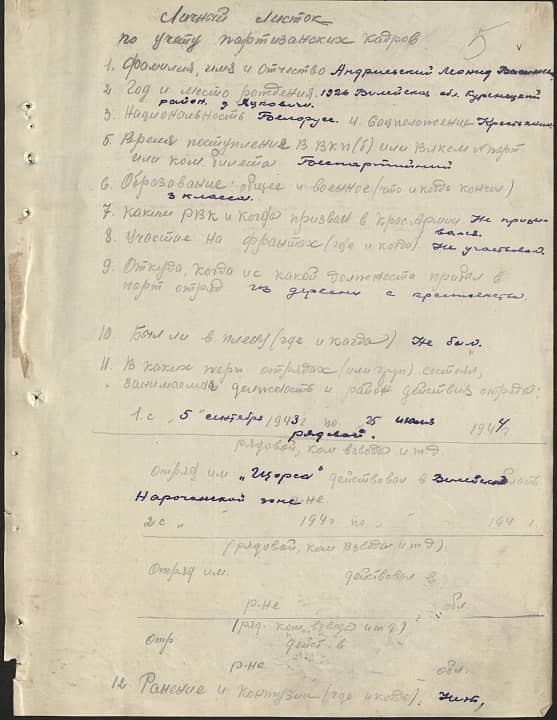 Личный листок
по учету партизанских кадров
5
1. Фамилия, имя и отчество Андриевский Леонид
2. Год и место рождения. 1926 Вилейская обл. Куренецкий
район. д.
3. Национальность Белорус. 4. Соцположение Крестьянин
5. Время поступления в ВКП(б) или ВЛКСМ № парт
или ком. билета Беспартийный
6. Образование: общее и военное (что и когда кончил)
3 класса.
7. Каким РВК и когда призван в Крас. Армию Не призы-
вался.
8. Участие на фронтах (где и когда). Не участвовал.
9. Откуда, когда и с какой должности прибыл в
парт отряд из деревни с крестьянства.
10. Был ли в плену (где и когда) Не был.
11. В каких парт отрядах (или груп) состоял,
занимаемая должность и район действия отряда:
1. с „5" сентября 1943 г по 25 июля 1944 г
рядовой.
рядовой, ком взвода и т д.
Отряд им „Щорса" действовал в Вилейской область
Нарочанской зоне р-не.
2 с „ 194 г по „ 194 г.
(рядовой, ком взвода и т д)
Отряд им. действовал в
р-не обл
(ряд. ком. взвода и т д)
Отр действ. в
р-не обл.
12 Ранение и контузии (где и когда). Нет,